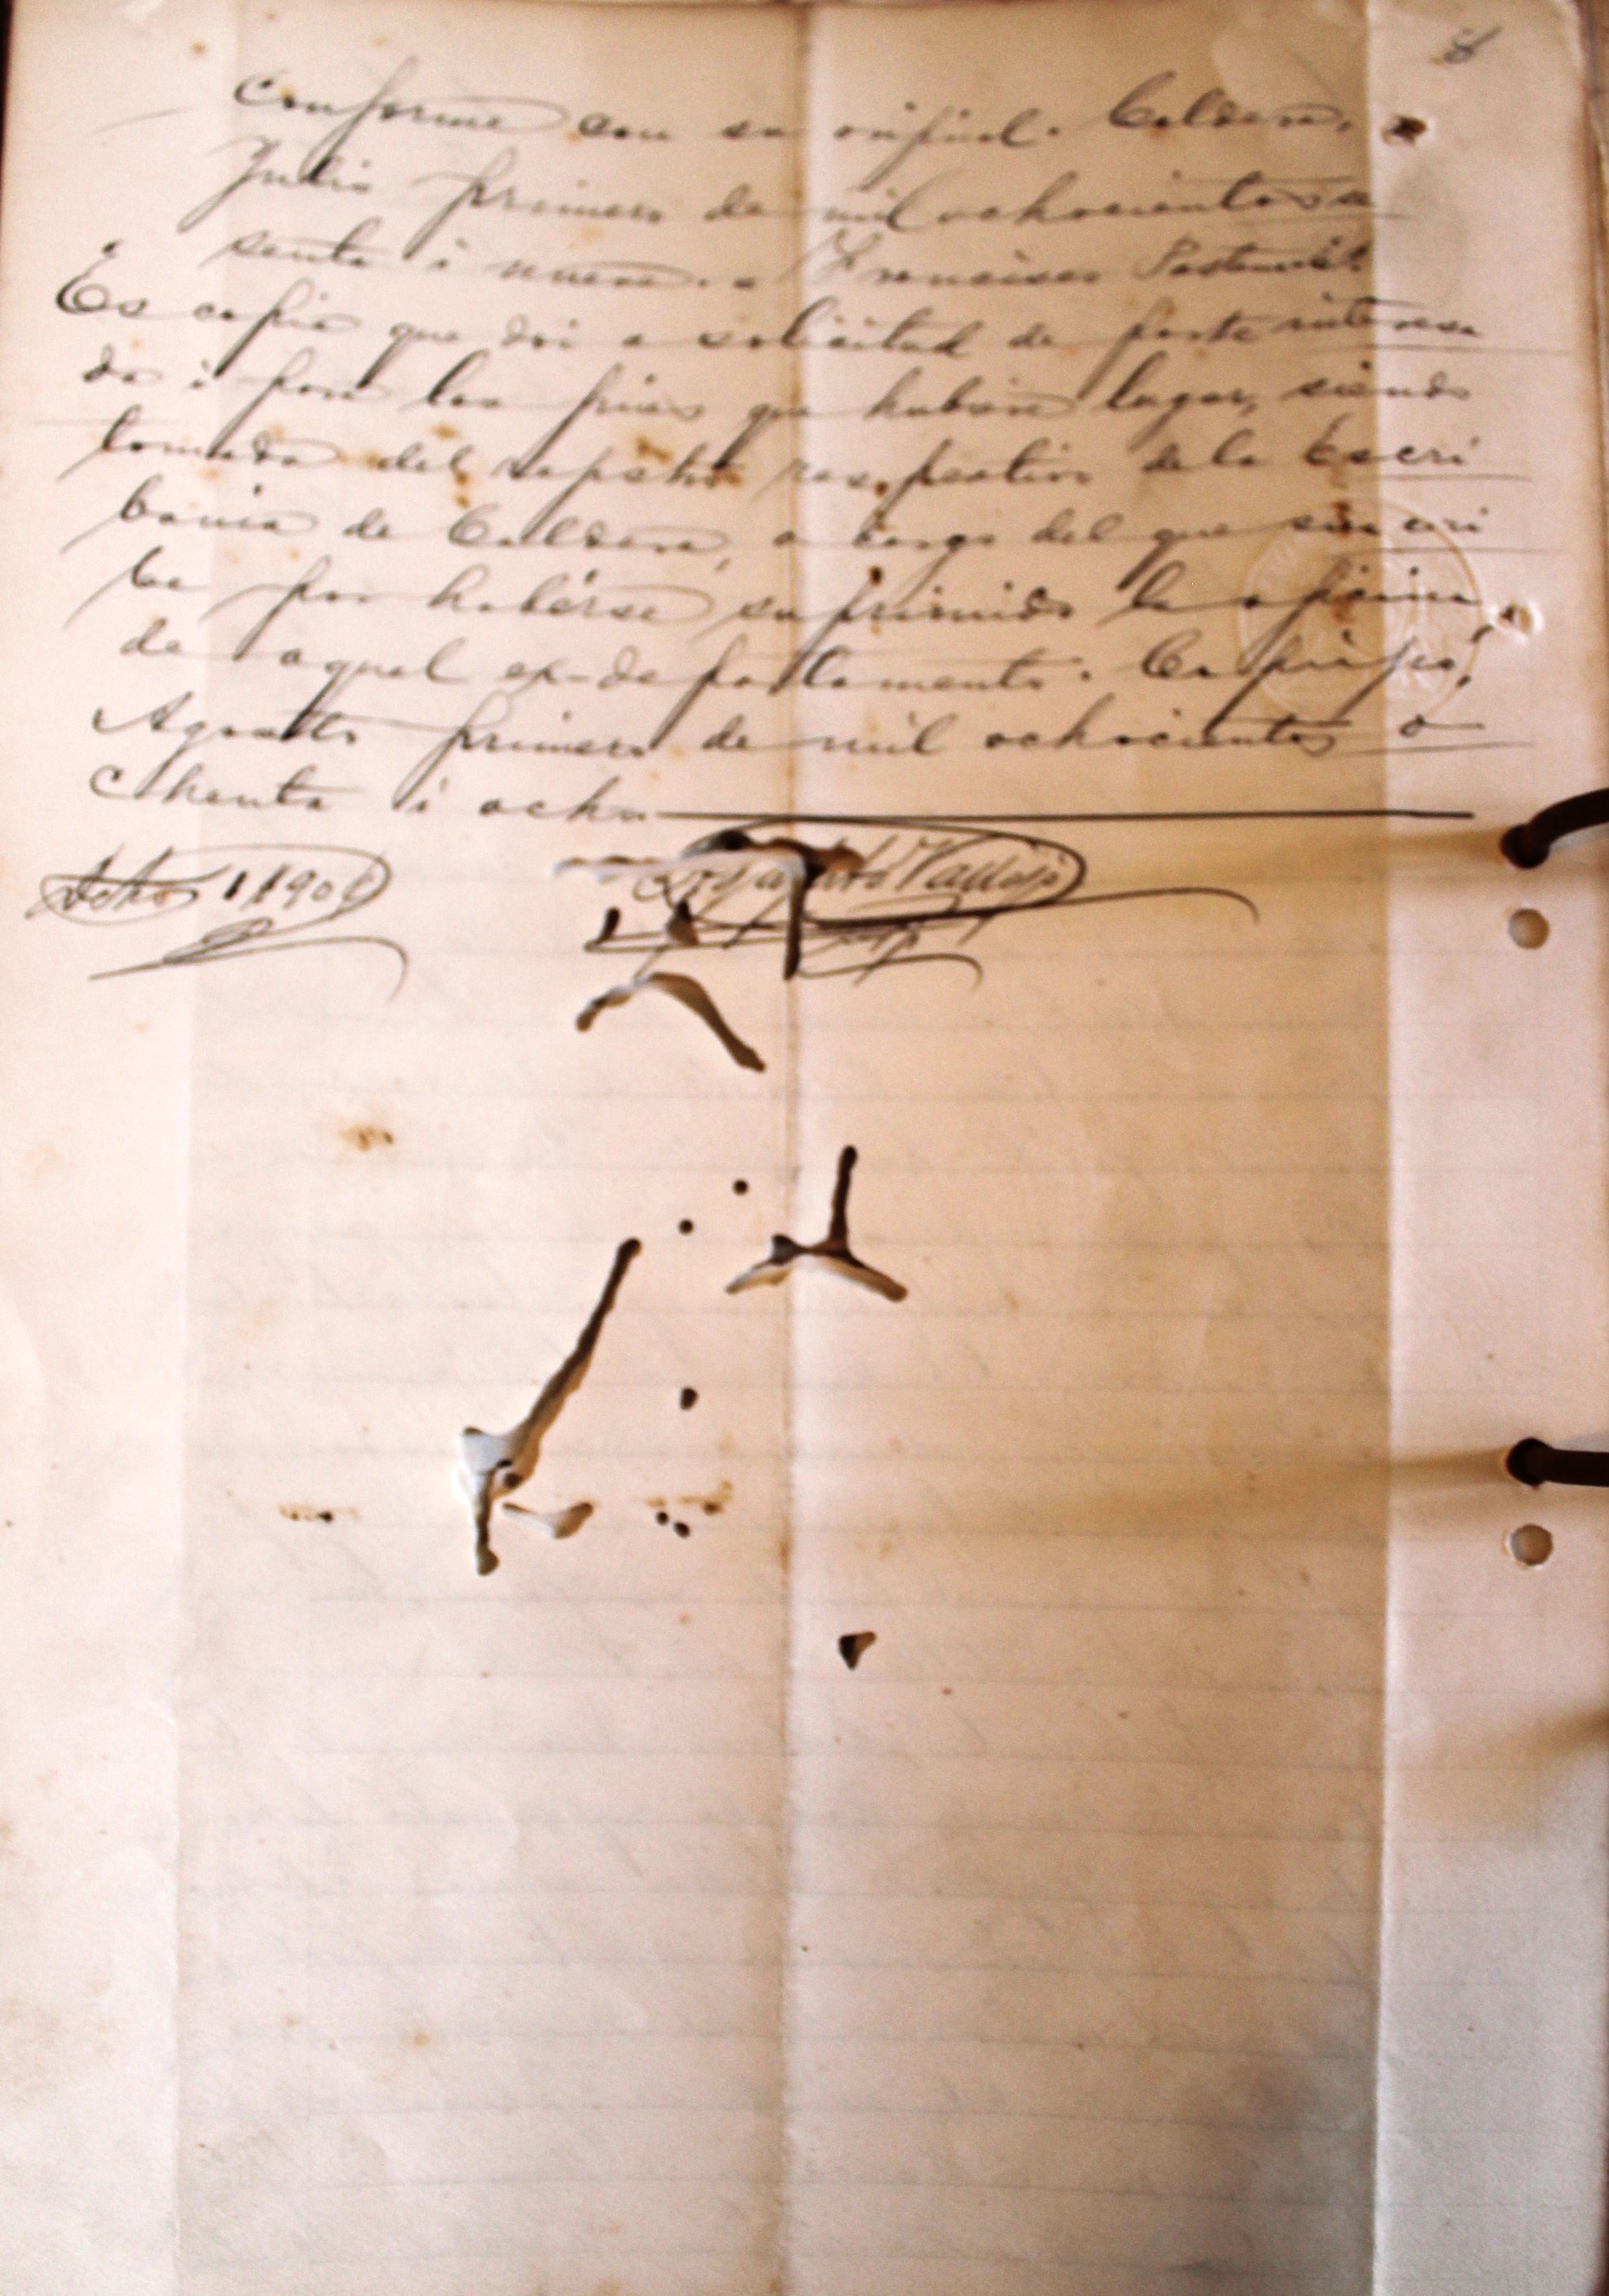 8
Conforme con su orijinal. Caldera,
Julio primero de mil ochocientos se
senta i nueve. Francisco
Es copia que doi a solicitud de parte interesa
da i para los fines que hubiere lugar, siendo
tomada del rejistro respectivo de la Escri
bania de Caldera, a cargo del que suscri
be por haberse suprimido la oficina
de aquel ex-departamento. Copiapó,
Agosto primero de mil ochocientos o
chenta i ocho
Vallejo